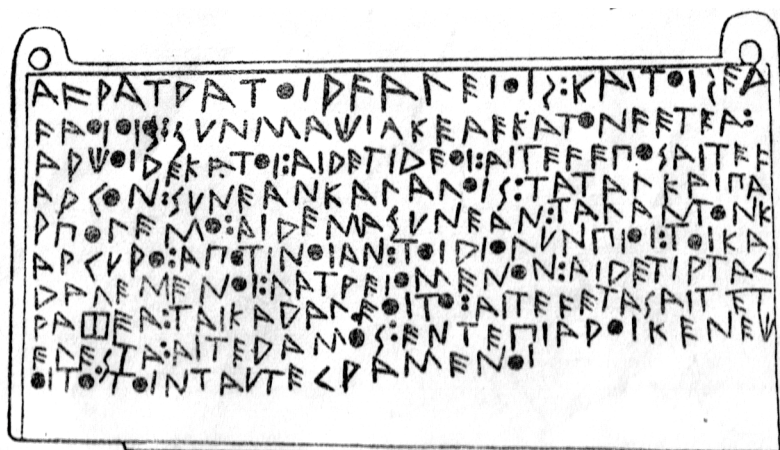 ΑϜΡΑΤΡΑΤΟΙΡϜΑΛΕΙΟΙΣ:ΚΑΙΤΟΙΣΕΡ
ϜΑΟΙΟΙΣ:ΣΥΝΜΑΧΙΑΚΕΑΕΚΑΤΟΝϜΕΤΕΑ:
ΑΡΧΟΙΔΕΚΑΤΟΙ:ΑΙΔΕΤΙΔΕΟΙ:ΑΙΤΕϜΕΠΟΣΑΙΤΕϜ
ΑΡΓΟΝ:ΣΥΝΕΑΝΚΑΛΑΛΟΙΣ:ΤΑΤΑΛΚΑΙΠΑ
ΡΠΟΛΕΜΟ:ΑΙΔΕΜΑΣΥΝΕΑΝ:ΤΑΛΑΝΤΟΝΚ
ΑΡΓΥΡΟ:ΑΠΟΤΙΝΟΙΑΝ:ΤΟΙΔΙΟΛΥΝΠΙΟΙ:ΤΟΙΚΑ
ΔΑΛΕΜΕΝΟΙ:ΛΑΤΡΕΙΟΜΕΝΟΝ:ΑΙΔΕΤΙΡΤΑΓ
ΡΑΦΕΑ:ΤΑΙΚΑΔΑΛΕΟΙΤΟ:ΑΙΤΕϜΕΤΑΣΑΙΤΕΤ
ΕΛΕΣΤΑ:ΑΙΤΕΔΑΜΟΣ:ΕΝΤΕΠΙΑΡΟΙΚΕΝΕΧ
ΟΙΤΟ:ΤΟΙΝΤΑΥΤΕΓΡΑΜΕΝΟΙ